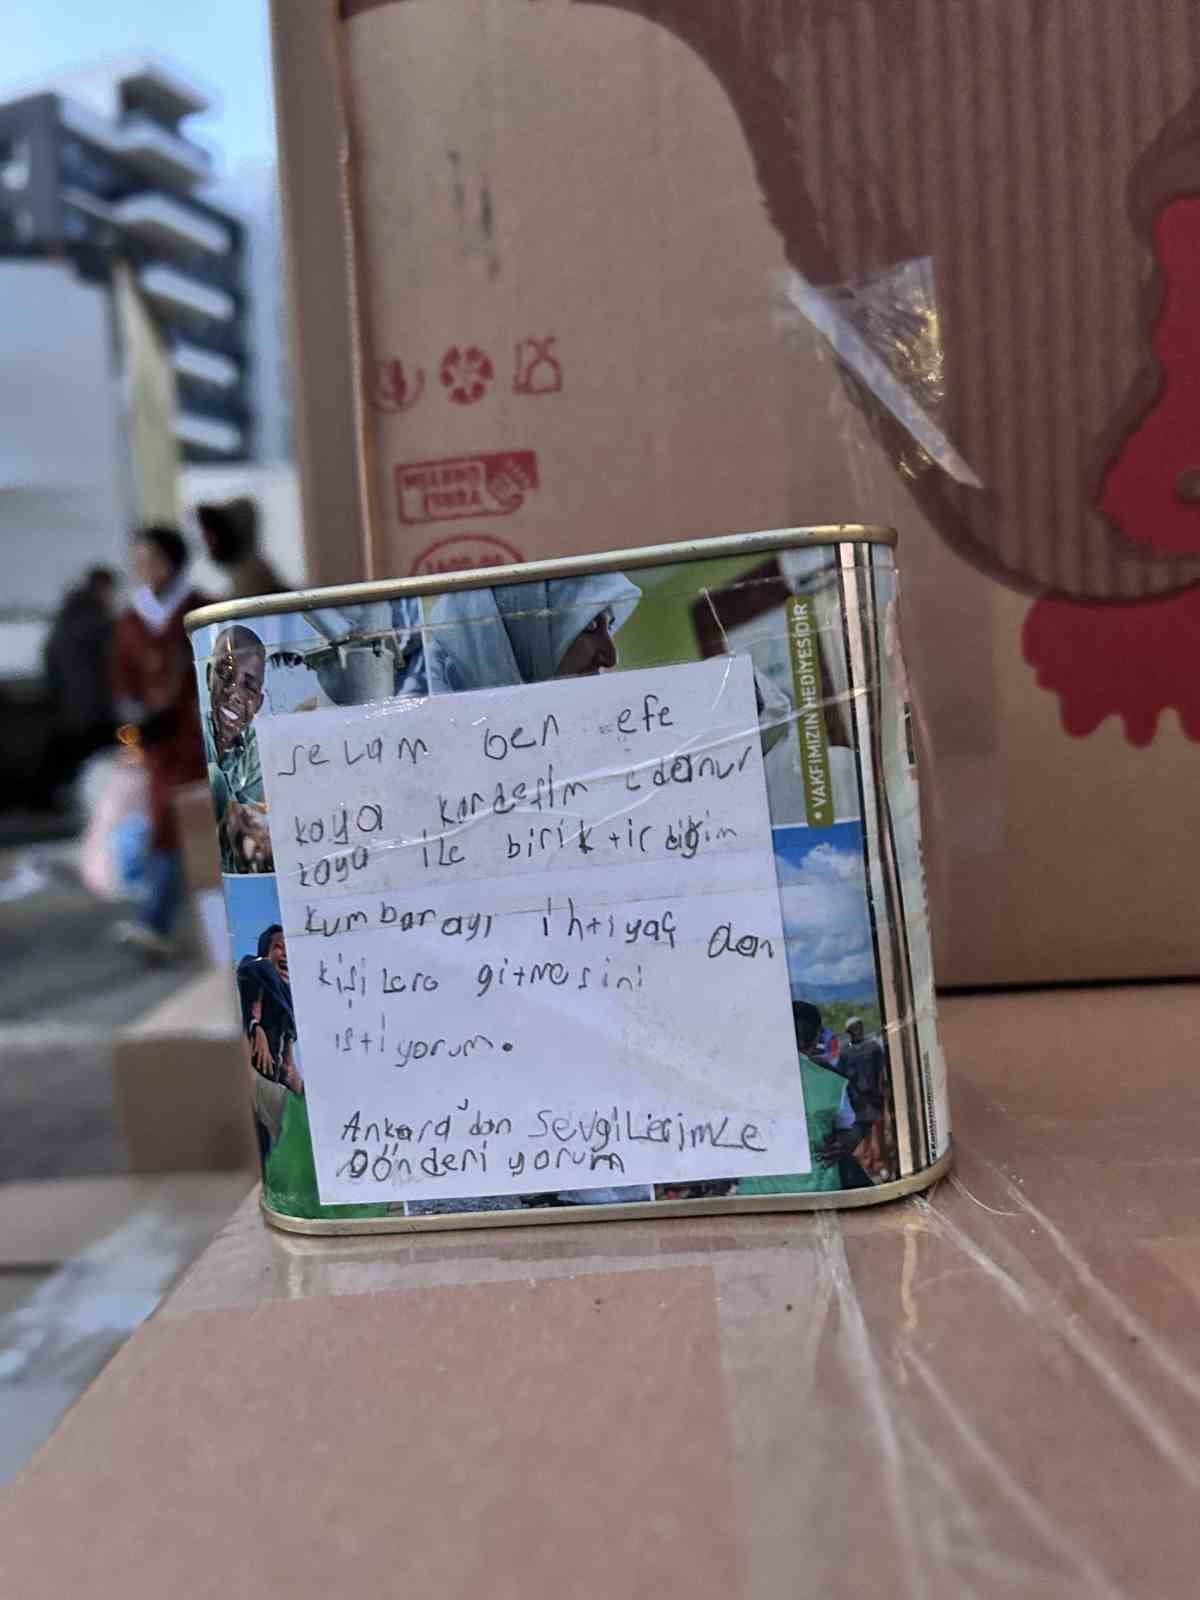 YERLİ
ÜRETİM
• VAKFIMIZIN HEDİYESİDİR
selam ben efe
kaya kardeşim edanur
kaya ile biriktirdiğim
kumbarayı ihtiyaç dan
kişilere gitmesini
istiyorum.
Ankara'dan Sevgilerimle
gönderiyorum